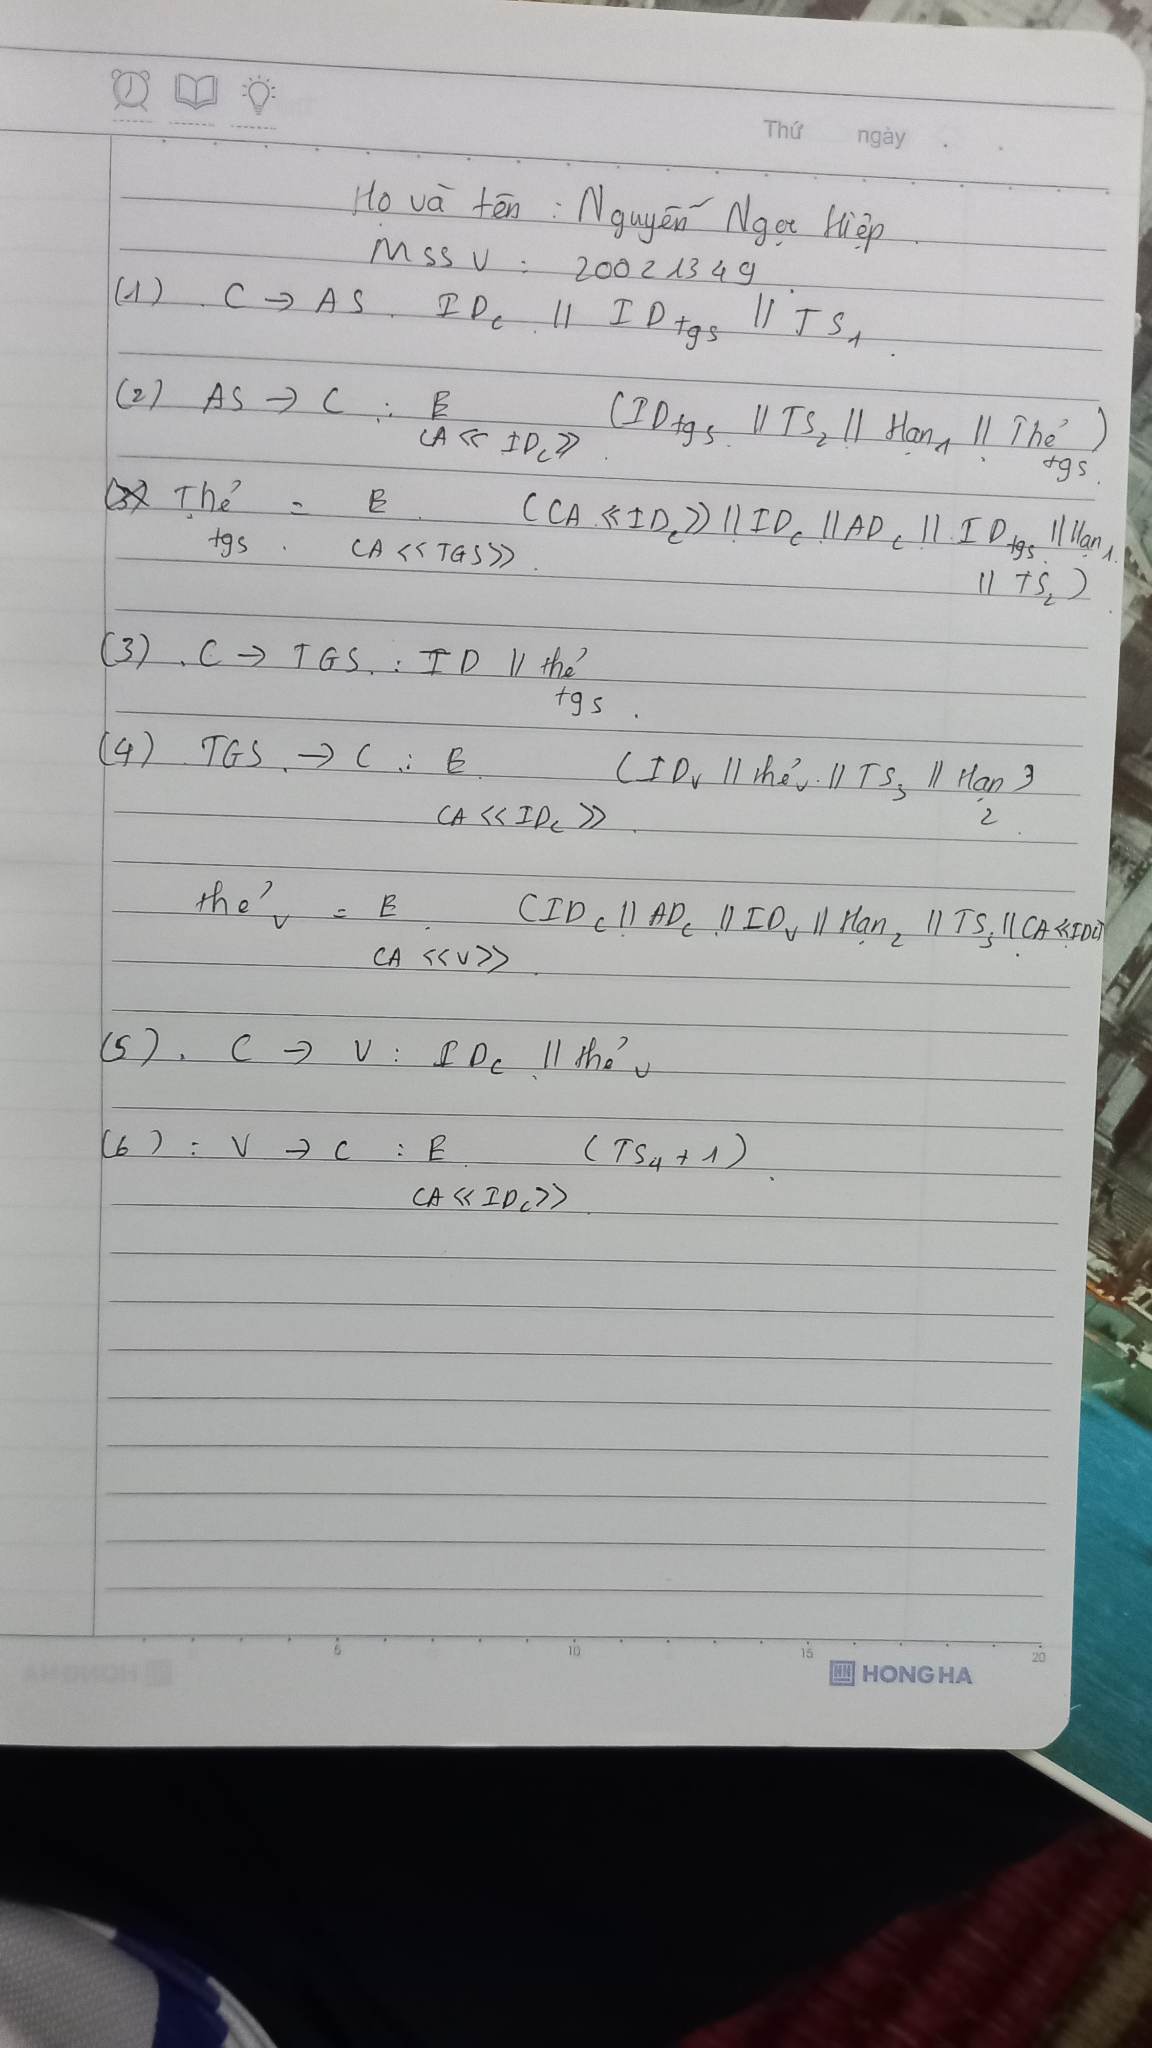 Thứ ngày
Họ và tên : Nguyễn Ngọc Hiệp
MSSV : 20021349
(1) C → AS . IDc || IDtgs || TS1
(2) AS → C : E CA<<IDc>> (IDtgs || TS2 || Hạn1 || Thẻtgs)
Thẻtgs = E CA<<TGS>> (CA<<IDc>> || IDc || ADc || IDtgs || Hạn1
|| TS2)
(3) . C → TGS : ID || thẻtgs
(4) TGS → C : E CA<<IDc>> (IDv || thẻv || TS3 || Hạn2)
thẻv = E CA<<V>> (IDc || ADc || IDv || Hạn2 || TS3 || CA<<IDc>>
(5) . C → V : IDc || thẻv
(6) : V → C : E CA<<IDc>> (TS4 + 1)
5 10 15 20
HONG HA